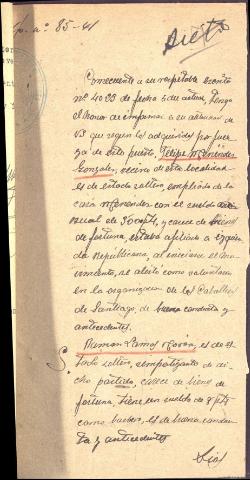 Dieto
Exp. nº 85-41
Consecuente a su respetable escrito
nº 4033 de fecha 5 de actual, tengo
el honor de informar a su
V3 que segun los adquiridos por fuer
za de este puesto, Felipe Menéndez
Gonzalez, vecino de esta localidad
es de estado soltero, empleado de la
casa Menendez con el sueldo
de 300 pts, y carece de bienes
de fortuna, estaba afiliado a izquier
da Republicana, al iniciarse el mo
vimiento, se alistó como voluntario
en la organizacion de los Caballeros
de Santiago, de buena conducta y
antecedentes.
Ramon Ramos es de es
tado soltero, simpatizante de di
cho partido, carece de bienes de
fortuna, tiene un sueldo de 8 pts
como barbero, es de buena conduc
ta y antecedentes
Dios